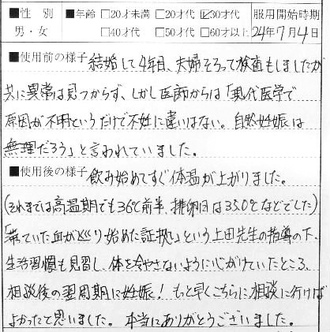 ■性別 ■年齢 □20才未満 □20才代 ☑30才代 服用開始時期
男・女 □40才代 □50才代 □60才以上 24年7月4日
■使用前の様子 結婚して4年目、夫婦そろって検査もしましたが
共に異常は見つからず、しかし医師からは「現代医学で
原因が不明というだけで不妊に違いはない。自然妊娠は
無理だろう」と言われていました。
■使用後の様子 飲み始めてすぐ体温が上がりました。
(それまでは高温期でも36℃前半、排卵日は35.0℃などでした)
「滞っていた血が巡り始めた証拠」という上田先生の指導の下、
生活習慣も見直し、体を冷やさないように心がけていたところ、
相談後の翌周期に妊娠! もっと早くこちらに相談に行けば
よかったと思いました。本当にありがとうございました。